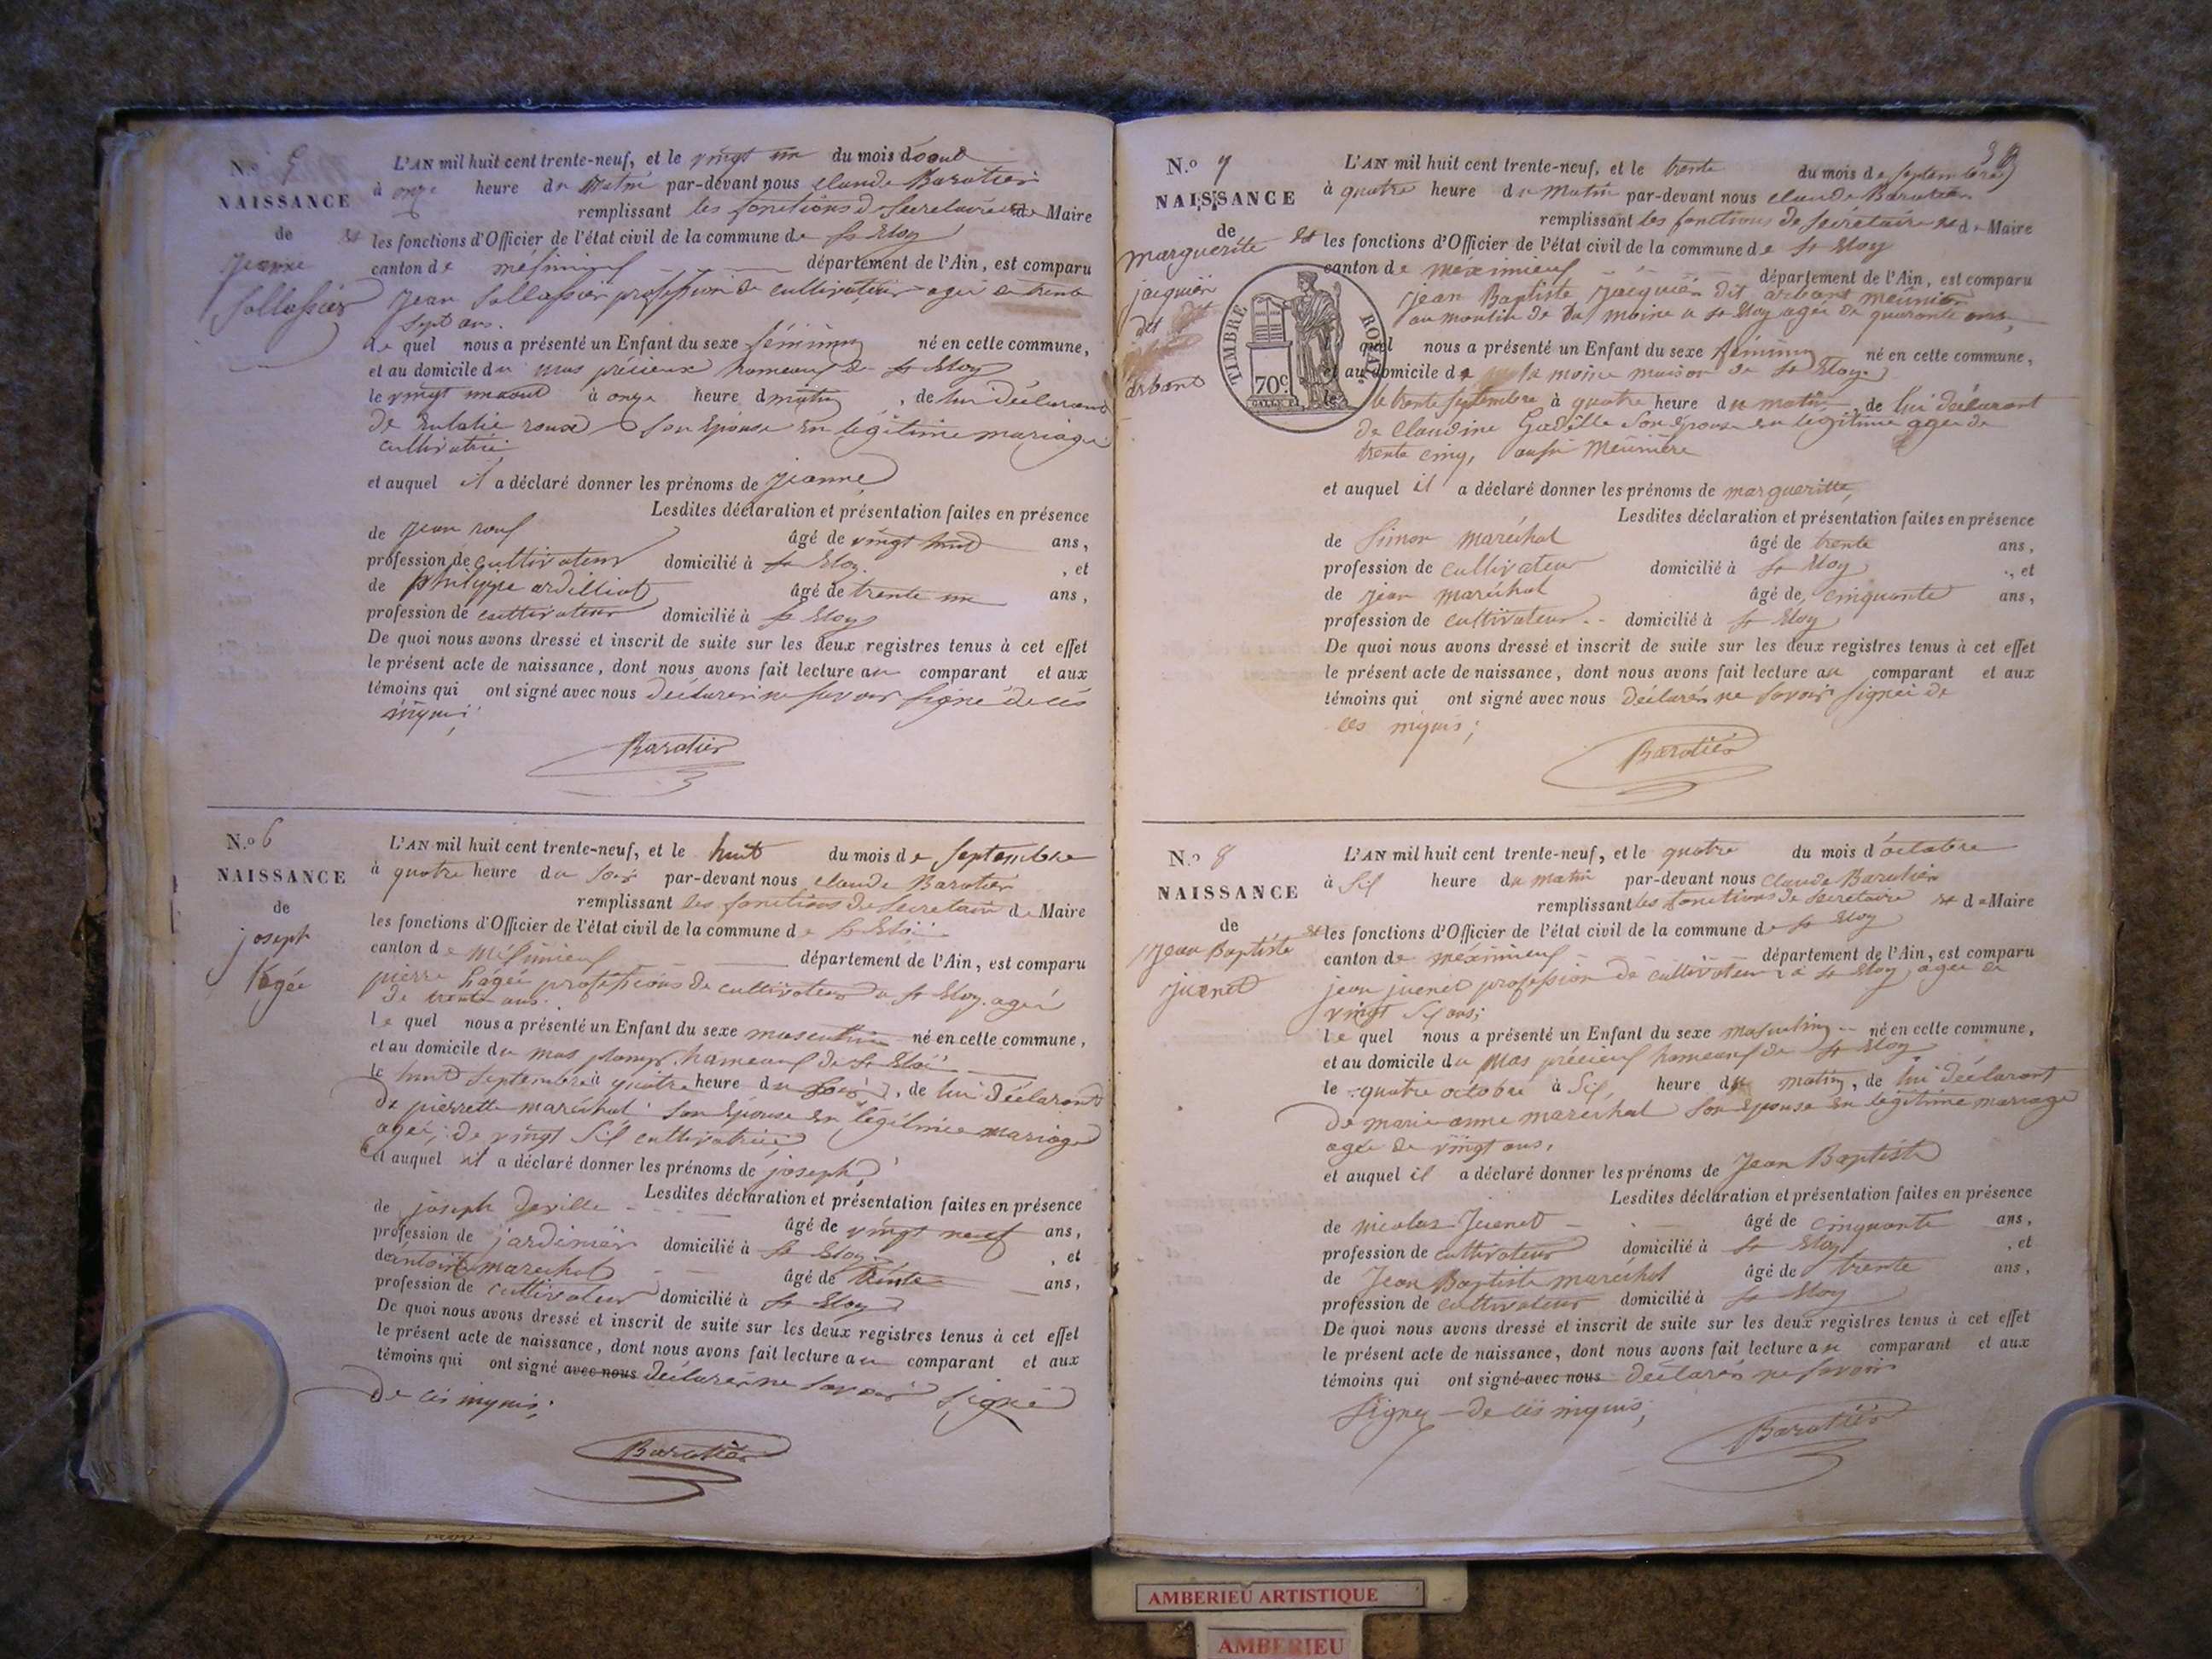 N.o 5
NAISSANCE
de
Jeanne
Sollassier
L'AN mil huit cent trente-neuf, et le vingt un du mois d'aout
à onze heure du Matin par-devant nous Claude Barotier
remplissant les fonctions de Secretaire de Maire
et les fonctions d'Officier de l'état civil de la commune de St Eloy
canton de département de l'Ain, est comparu
Jean Sollassier profession de cultivateur agé de trente
sept ans.
le quel nous a présenté un Enfant du sexe féminin né en cette commune,
et au domicile du mas précieux hameaux de St Eloy
le vingt un aout à onze heure d matin, de lui Déclarant
De Eulalie roux Son Epouse en légitime mariage
cultivatrice
et auquel il a déclaré donner les prénoms de Jeanne
Lesdites déclaration et présentation faites en présence
de Jean roux âgé de vingt huit ans,
profession de cultivateur domicilié à St Eloy, et
de philippe ardilliat âgé de trente un ans,
profession de cultivateur domicilié à St Eloy
De quoi nous avons dressé et inscrit de suite sur les deux registres tenus à cet effet
le présent acte de naissance, dont nous avons fait lecture au comparant et aux
témoins qui ont signé avec nous Déclarer ne savoir signé de ces
Barotier
N.o 6
NAISSANCE
de
joseph
L'AN mil huit cent trente-neuf, et le huit du mois de Septembre
à quatre heure du soir par-devant nous Claude Barotier
remplissant les fonctions de Secretaire de Maire
les fonctions d'Officier de l'état civil de la commune de St Eloi
canton de département de l'Ain, est comparu
pierre profession de cultivateur a St Eloy. agé
De trente ans.
le quel nous a présenté un Enfant du sexe masculin né en cette commune,
et au domicile du mas hameaux de St Eloi
le huit Septembre à quatre heure du soir, de lui Déclarant
De pierrette maréchal Son Epouse en légitime mariage
agée, de vingt Six cultivatrice
et auquel il a déclaré donner les prénoms de joseph
Lesdites déclaration et présentation faites en présence
de joseph Deville âgé de vingt neuf ans,
profession de jardinier domicilié à St Eloy, et
de antoine marechal âgé de trente ans,
profession de cultivateur domicilié à St Eloy
De quoi nous avons dressé et inscrit de suite sur les deux registres tenus à cet effet
le présent acte de naissance, dont nous avons fait lecture au comparant et aux
témoins qui ont signé avec nous Déclarer ne savoir signé
De ces
Barotier
39
N.o 7
NAISSANCE
de
marguerite
jacquier
dit
arbant
TIMBRE ROYAL
70c
L'AN mil huit cent trente-neuf, et le trente du mois de Septembre
à quatre heure du Matin par-devant nous Claude Barotier
remplissant les fonctions de Secretaire et de Maire
et les fonctions d'Officier de l'état civil de la commune de St Eloy
canton de méximieux département de l'Ain, est comparu
Jean Baptiste Jacquier Dit arbant meunier
au moulin de la moine a St Eloy agé de quarante ans,
quel nous a présenté un Enfant du sexe féminin né en cette commune,
et au domicile de la moine maison de St Eloy
le trente Septembre à quatre heure du matin, de lui déclarant
De Claudine Son Epouse en légitime agée de
trente cinq, aussi Meunière
et auquel il a déclaré donner les prénoms de margueritte,
Lesdites déclaration et présentation faites en présence
de Simon maréchal âgé de trente ans,
profession de cultivateur domicilié à St Eloy, et
de Jean maréchal âgé de cinquante ans,
profession de cultivateur domicilié à St Eloy
De quoi nous avons dressé et inscrit de suite sur les deux registres tenus à cet effet
le présent acte de naissance, dont nous avons fait lecture au comparant et aux
témoins qui ont signé avec nous Déclarer ne savoir signer de
ces
Barotier
N.o 8
NAISSANCE
de
Jean Baptiste
juenet
L'AN mil huit cent trente-neuf, et le quatre du mois d'octobre
à Six heure du matin par-devant nous Claude Barotier
remplissant les fonctions de Secretaire et de Maire
et les fonctions d'Officier de l'état civil de la commune de St Eloy
canton de méximieux département de l'Ain, est comparu
jean juenet profession de cultivateur a St Eloy, agée de
vingt Six ans;
le quel nous a présenté un Enfant du sexe masculin né en cette commune,
et au domicile du Mas précieux hameaux de St Eloy
le quatre octobre à Six, heure du matin, de lui déclarant
De marie anne maréchal Son Epouse en légitime mariage
agée de vingt ans,
et auquel il a déclaré donner les prénoms de Jean Baptiste
Lesdites déclaration et présentation faites en présence
de nicolas Juenet âgé de cinquante ans,
profession de cultivateur domicilié à St Eloy, et
de Jean Baptiste maréchal âgé de trente ans,
profession de cultivateur domicilié à St Eloy
De quoi nous avons dressé et inscrit de suite sur les deux registres tenus à cet effet
le présent acte de naissance, dont nous avons fait lecture au comparant et aux
témoins qui ont signé avec nous déclarer ne savoir
Signer de ces
Barotier
AMBERIEU ARTISTIQUE
AMBERIEU